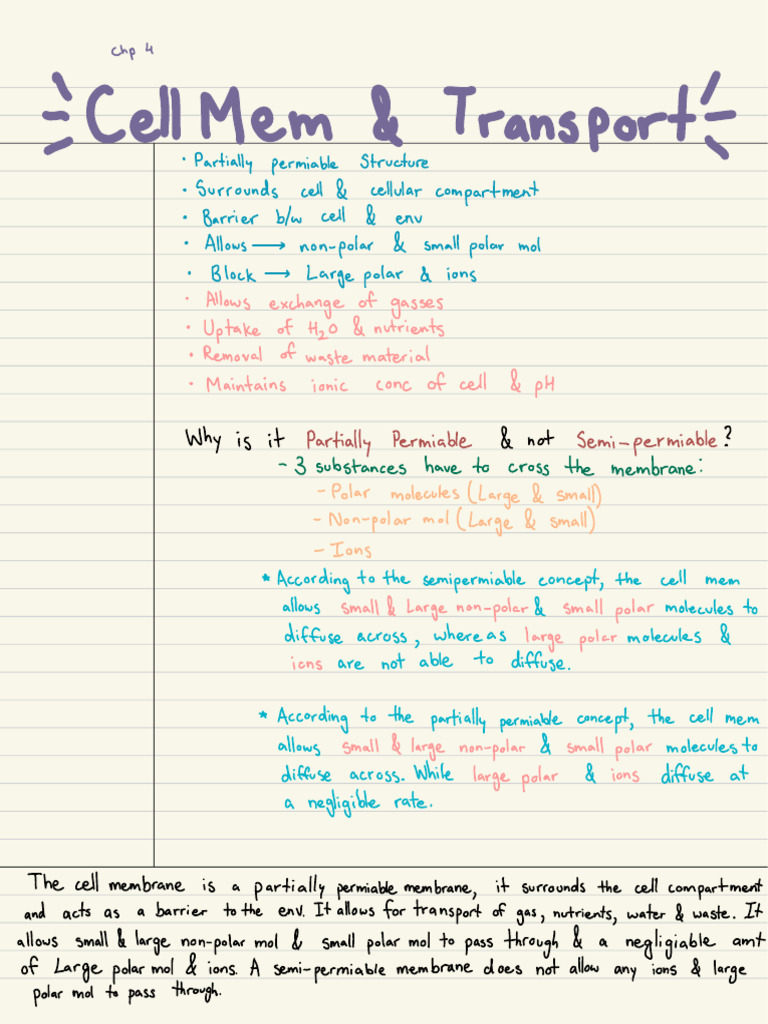 Chp 4
Cell Mem & Transport
• Partially permiable Structure
• Surrounds cell & cellular compartment
• Barrier b/w cell & env
• Allows → non-polar & small polar mol
• Block → Large polar & ions
• Allows exchange of gasses
• Uptake of H₂O & nutrients
• Removal of waste material
• Maintains ionic conc of cell & pH
Why is it Partially Permiable & not Semi-permiable?
- 3 substances have to cross the membrane:
- Polar molecules (Large & small)
- Non-polar mol (Large & small)
- Ions
* According to the semipermiable concept, the cell mem
allows small & Large non-polar & small polar molecules to
diffuse across, where as large polar molecules &
ions are not able to diffuse.
* According to the partially permiable concept, the cell mem
allows small & large non-polar & small polar molecules to
diffuse across. While large polar & ions diffuse at
a negligible rate.
The cell membrane is a partially permiable membrane, it surrounds the cell compartment
and acts as a barrier to the env. It allows for transport of gas, nutrients, water & waste. It
allows small & large non-polar mol & small polar mol to pass through & a negligiable amt
of Large polar mol & ions. A semi-permiable membrane does not allow any ions & large
polar mol to pass through.